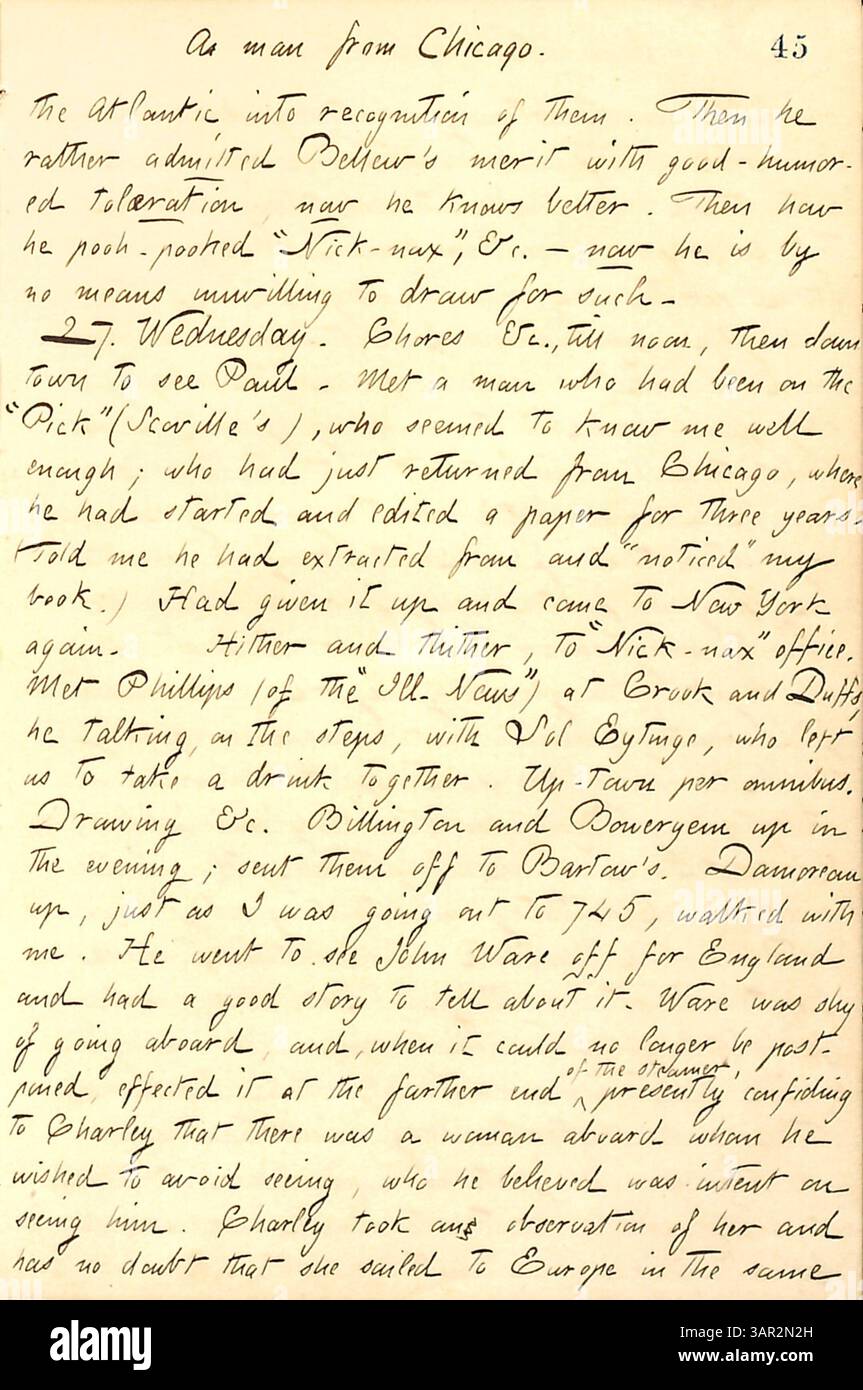 As man from Chicago.
45
the Atlantic into recognition of them. Then he
rather admitted Bellew's merit with good-humor-
ed toleration, now he knows better. Then how
he pooh-poohed "Nick-nax", &c. — now he is by
no means unwilling to draw for such —
27. Wednesday. Chores &c., till noon, then down
town to see Paul. Met a man who had been on the
"Pick" (Scoville's), who seemed to know me well
enough; who had just returned from Chicago, where
he had started and edited a paper for three years.
(Told me he had extracted from and "noticed" my
book.) Had given it up and come to New York
again. Hither and thither, to "Nick-nax" office.
Met Phillips (of the "Ill. News") at Crook and Duffs,
he talking, on the steps, with Sol Eytinge, who left
us to take a drink together. Up-town per omnibus.
Drawing &c. Billington and Boweryem up in
the evening; sent them off to Bartow's. Damoreau
up, just as I was going out to 745, walked with
me. He went to see John Ware off for England
and had a good story to tell about it. Ware was shy
of going aboard, and, when it could no longer be post-
poned, effected it at the farther end of the steamer, presently confiding
to Charley that there was a woman aboard whom he
wished to avoid seeing, who he believed was intent on
seeing him. Charley took an observation of her and
has no doubt that she sailed to Europe in the same
alamy
Image ID: 3AR2N2H
www.alamy.com